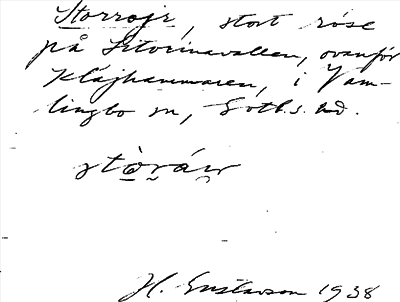 Storrojr, stort röse
på Litorinavallen, ovanför
Klájhammaren, i Vam-
lingbo sn, Gotl. s. hd.
H. Gustavson 1938